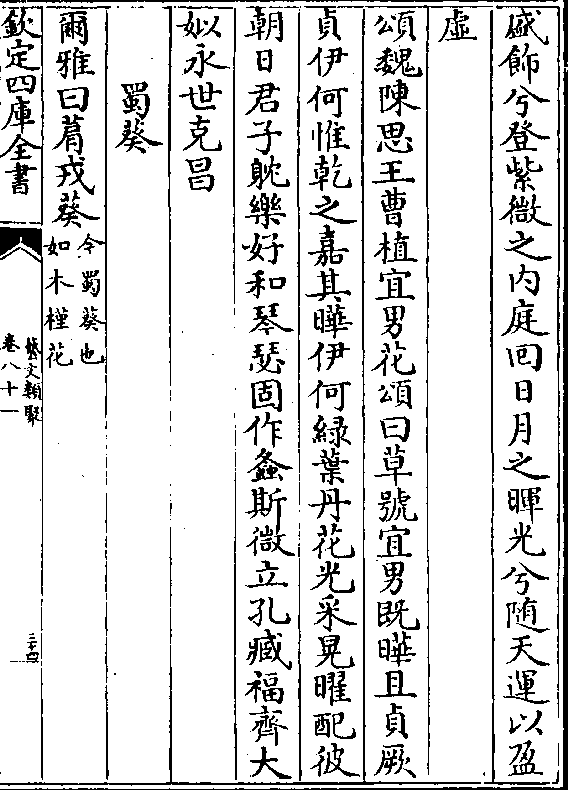 盛飾兮登紫微之内庭回日月之暉光兮随天運以盈
虛
頌魏陳思王曹植宜男花頌曰草號宜男既曄且貞厥
貞伊何惟乾之嘉其曄伊何緑葉丹花光采晃曜配彼
朝日君子躭樂好和琴瑟固作螽斯微立孔臧福齊大
姒永世克昌
蜀葵
爾雅曰菺戎葵今蜀葵也
如木槿花
欽定四庫全書
藝文類聚
卷八十一
三十四